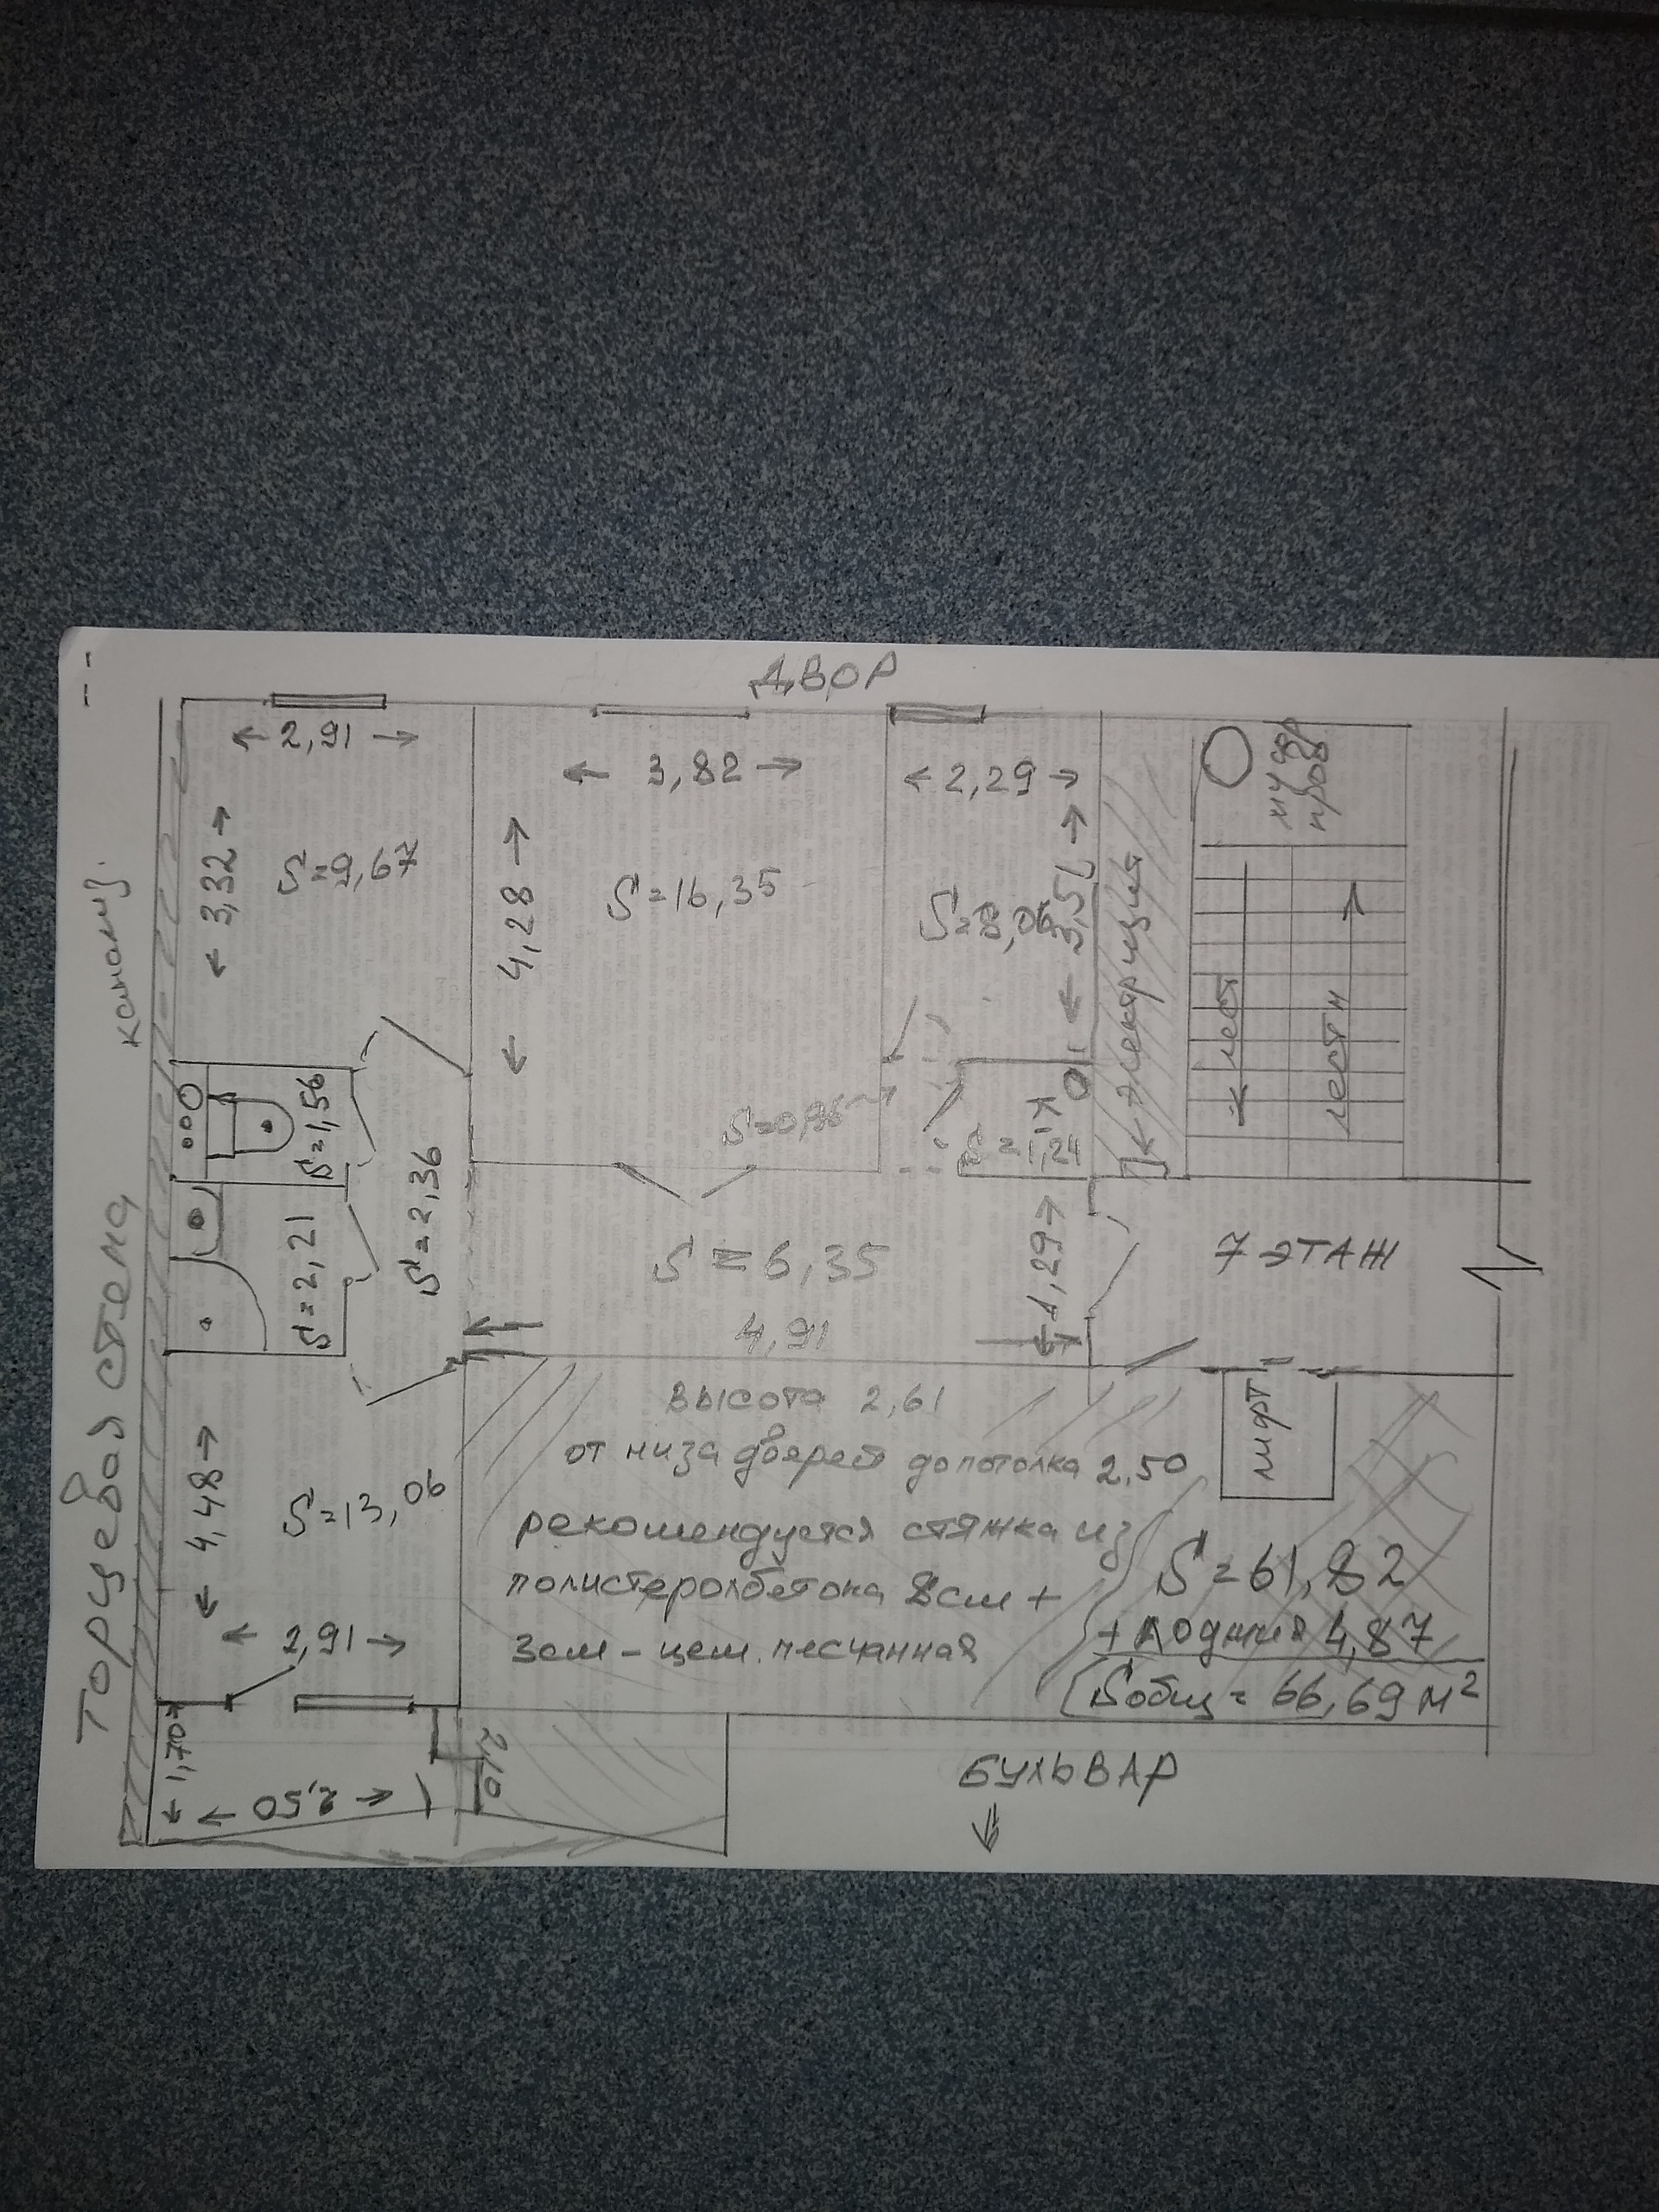 ДВОР
← 2,91 →
← 3,82 →
← 2,29 →
мус
пров
← 3,32 →
S=9,67
← 4,28 →
S=16,35
S=8,06
← 3,51 →
электриция
канализ.
← лест
лестн →
S=1,56
S=0,96
S=1,24
S=2,36
S=2,21
S=6,35
← 1,29 →
7 ЭТАЖ
4,91
Торцевая стена
ВЫСОТА 2,61
от низа дверей до потолка 2,50
лифт
← 4,48 →
S=13,06
рекомендуется стяжка из
полистеролбетона 8см +
3см - цем. песчанная
S=61,82
+ лоджия 4,87
Sобщ = 66,69 м²
← 2,91 →
← 1,70 →
← 2,50 →
БУЛЬВАР